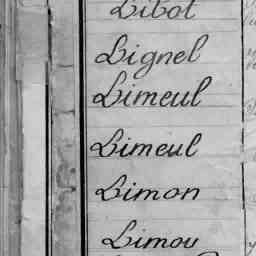 Libot
Lignel
Limeul
Limeul
Limon
Limou